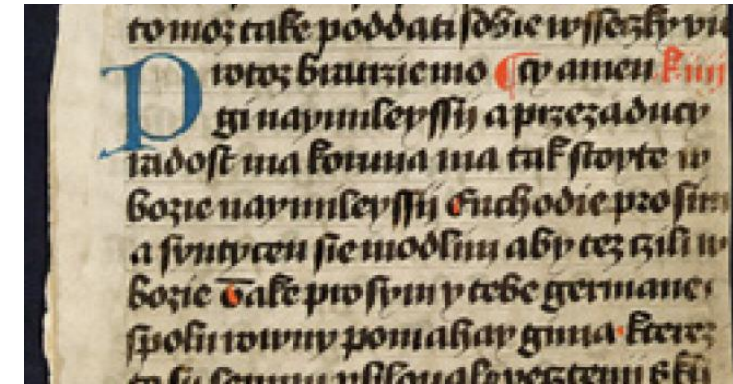 to moz take poddati sobie wsseczky
Protoz bratrziemo ¶ cy amen k iiij
gi naymileyssij a przezaducy
radost ma koruna ma tak stoyte w
bozie naymileyssij Euchodie prosim
a syntycen sie modlim aby tez czili w
bozie Take prosym y tebe germane
spolu rowny pomahay gima kterez
to su semnu